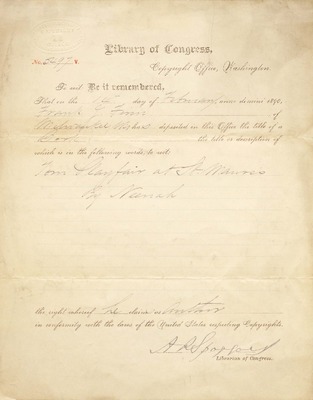 Library of Congress,
Copyright Office, Washington.
To wit: Be it remembered,
That on the day of February, anno domini 1890,
Frank Finn, of
Milwaukee, Wis., deposited in this Office the title of a
Book the title or description of
which is in the following words, to wit:
Tom Playfair at St. Maures
By Neenah
the right whereof he claims as author
in conformity with the laws of the United States respecting Copyrights.
A. R. Spofford
Librarian of Congress.